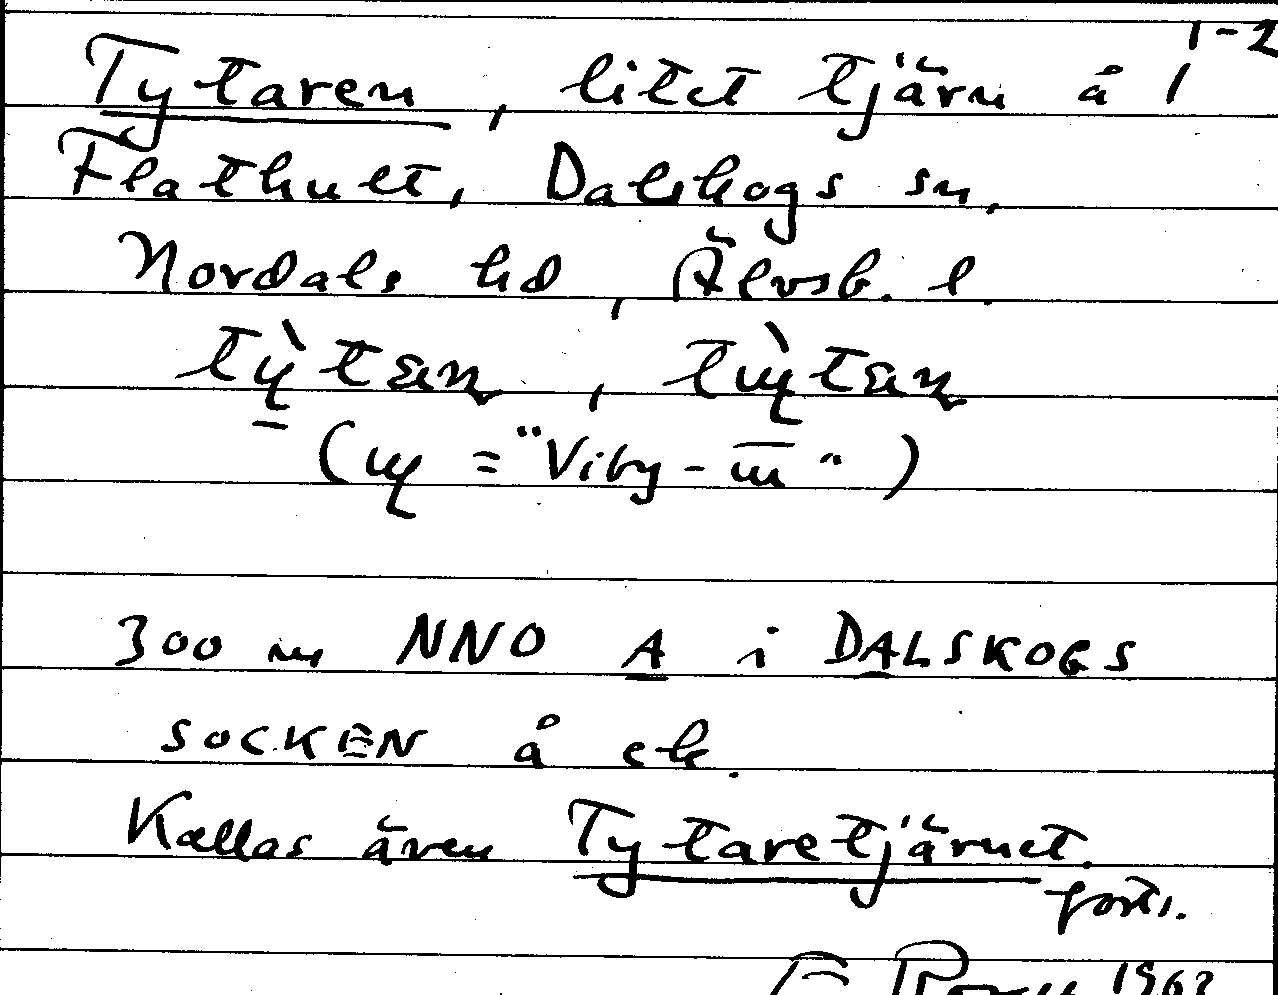 1-2
Tytaren, litet tjärn å 1
Flathult, Dalskogs sn,
Nordals hd, Älvsb. l.
(ɰ = "Viby-ɯ")
300 m NNO A i DALSKOGS
SOCKEN å ek.
Kallas även Tytaretjärnet.
forts.